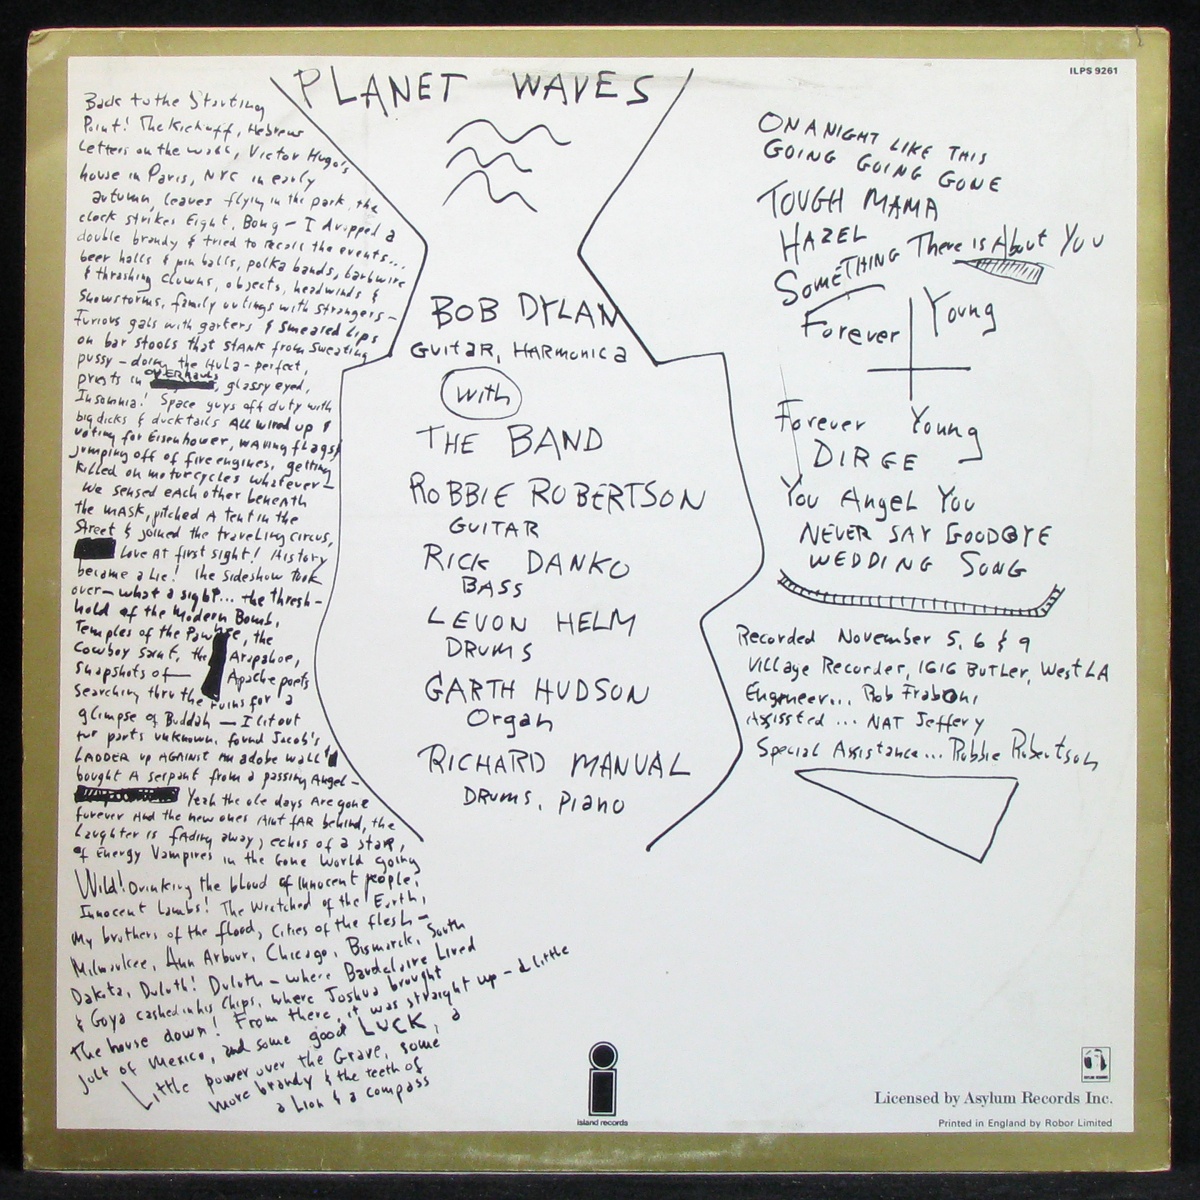 PLANET WAVES
ILPS 9261
Back to the Starting
Point! The Kickoff, Hebrew
Letters on the wall, Victor Hugo's
house in Paris, NYC in early
autumn, leaves flying in the park, the
clock strikes Eight, Bong — I dropped a
double brandy & tried to recall the events...
beer halls & pin balls, polka bands, barbwire
& thrashing clowns, objects, headwinds &
Snowstorms, family outings with strangers —
Furious gals with garters & smeared Lips
on bar stools that stank from sweating
pussy — doing the Hula — perfect,
priests in overhauls, glassy eyed,
Insomnia! Space guys off duty with
big dicks & ducktails All wired up &
voting for Eisenhower, waving flags &
jumping off of fire engines, getting
killed on motorcycles whatever —
We sensed each other beneath
the mask, pitched a tent in the
Street & joined the traveling circus,
Love at first sight! History
became a Lie! the sideshow took
over — what a sight... the thresh-
hold of the Modern Bomb,
Temples of the Pawnee, the
Cowboy saint, the Arapahoe,
snapshots of — Apache poets
searching thru the ruins for a
glimpse of Buddah — I lit out
for parts unknown, found Jacob's
Ladder up against an adobe wall &
bought a serpant from a passing Angel —
Yeah the ole days Are gone
forever And the new ones Aint fAR behind, the
Laughter is fAding away, echos of a staR,
of Energy Vampires in the Gone World going
Wild! Drinking the blood of Innocent people,
Innocent Lambs! The Wretched of the Earth,
My brothers of the flood, Cities of the flesh —
Milwaukee, Ann Arbour, Chicago, Bismarck, South
Dakota, Duluth! Duluth — where Baudelaire Lived
& Goya cashed in his Chips, where Joshua brought
the house down! From there, it was straight up — a little
jolt of Mexico, and some good LUCK, a
Little power over the Grave, some
more brandy & the teeth of
a Lion & a compass
BOB DYLAN
GUitaR, HARmonica
with
THE BAND
ROBBIE ROBERTSON
GUITAR
RICK DANKO
BASS
LEVON HELM
DRUMS
GARTH HUDSON
Organ
RICHARD MANUAL
DRUMS, Piano
ON A NIGHT LIKE THIS
GOING GOING GONE
TOUGH MAMA
HAZEL
SOMETHING There is About You
Forever Young
Forever Young
DIRGE
You Angel You
NEVER SAY GOODBYE
WEDDING SONG
Recorded November 5, 6 & 9
Village Recorder, 1616 BUTLER, West LA
Engineer... Rob Fraboni
Assissted ... NAT Jeffery
Special Assistance... Robbie Robertson
island records
Licensed by Asylum Records Inc.
Printed in England by Robor Limited